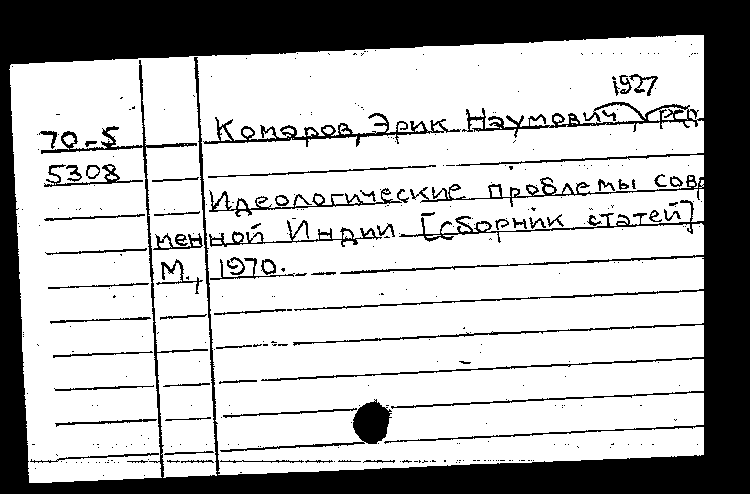 1927
70-5 Комаров, Эрик Наумович, ред
5308
Идеологические проблемы совр
менной Индии. [Сборник статей]
М., 1970.